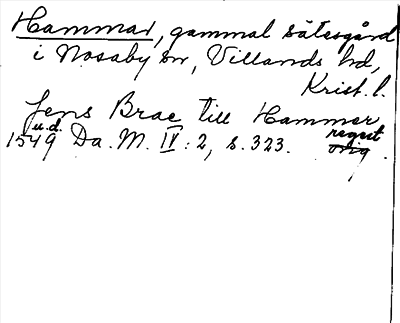 Hammar, gammal sätesgård
i Nosaby sn, Villands hd,
Krist. l.
Jens Brae till Hammer
1549 u.d. Da. M. IV: 2, s. 323. regest orig.